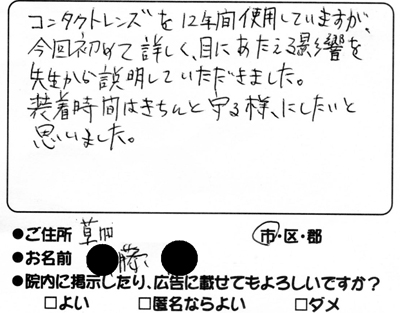 コンタクトレンズを12年間使用していますが、
今回初めて詳しく、目にあたえる影響を
先生から説明していただきました。
装着時間はきちんと守る様、にしたいと
思いました。
●ご住所 草加 市・区・郡
●お名前 藤
●院内に掲示したり、広告に載せてもよろしいですか?
□よい □匿名ならよい □ダメ